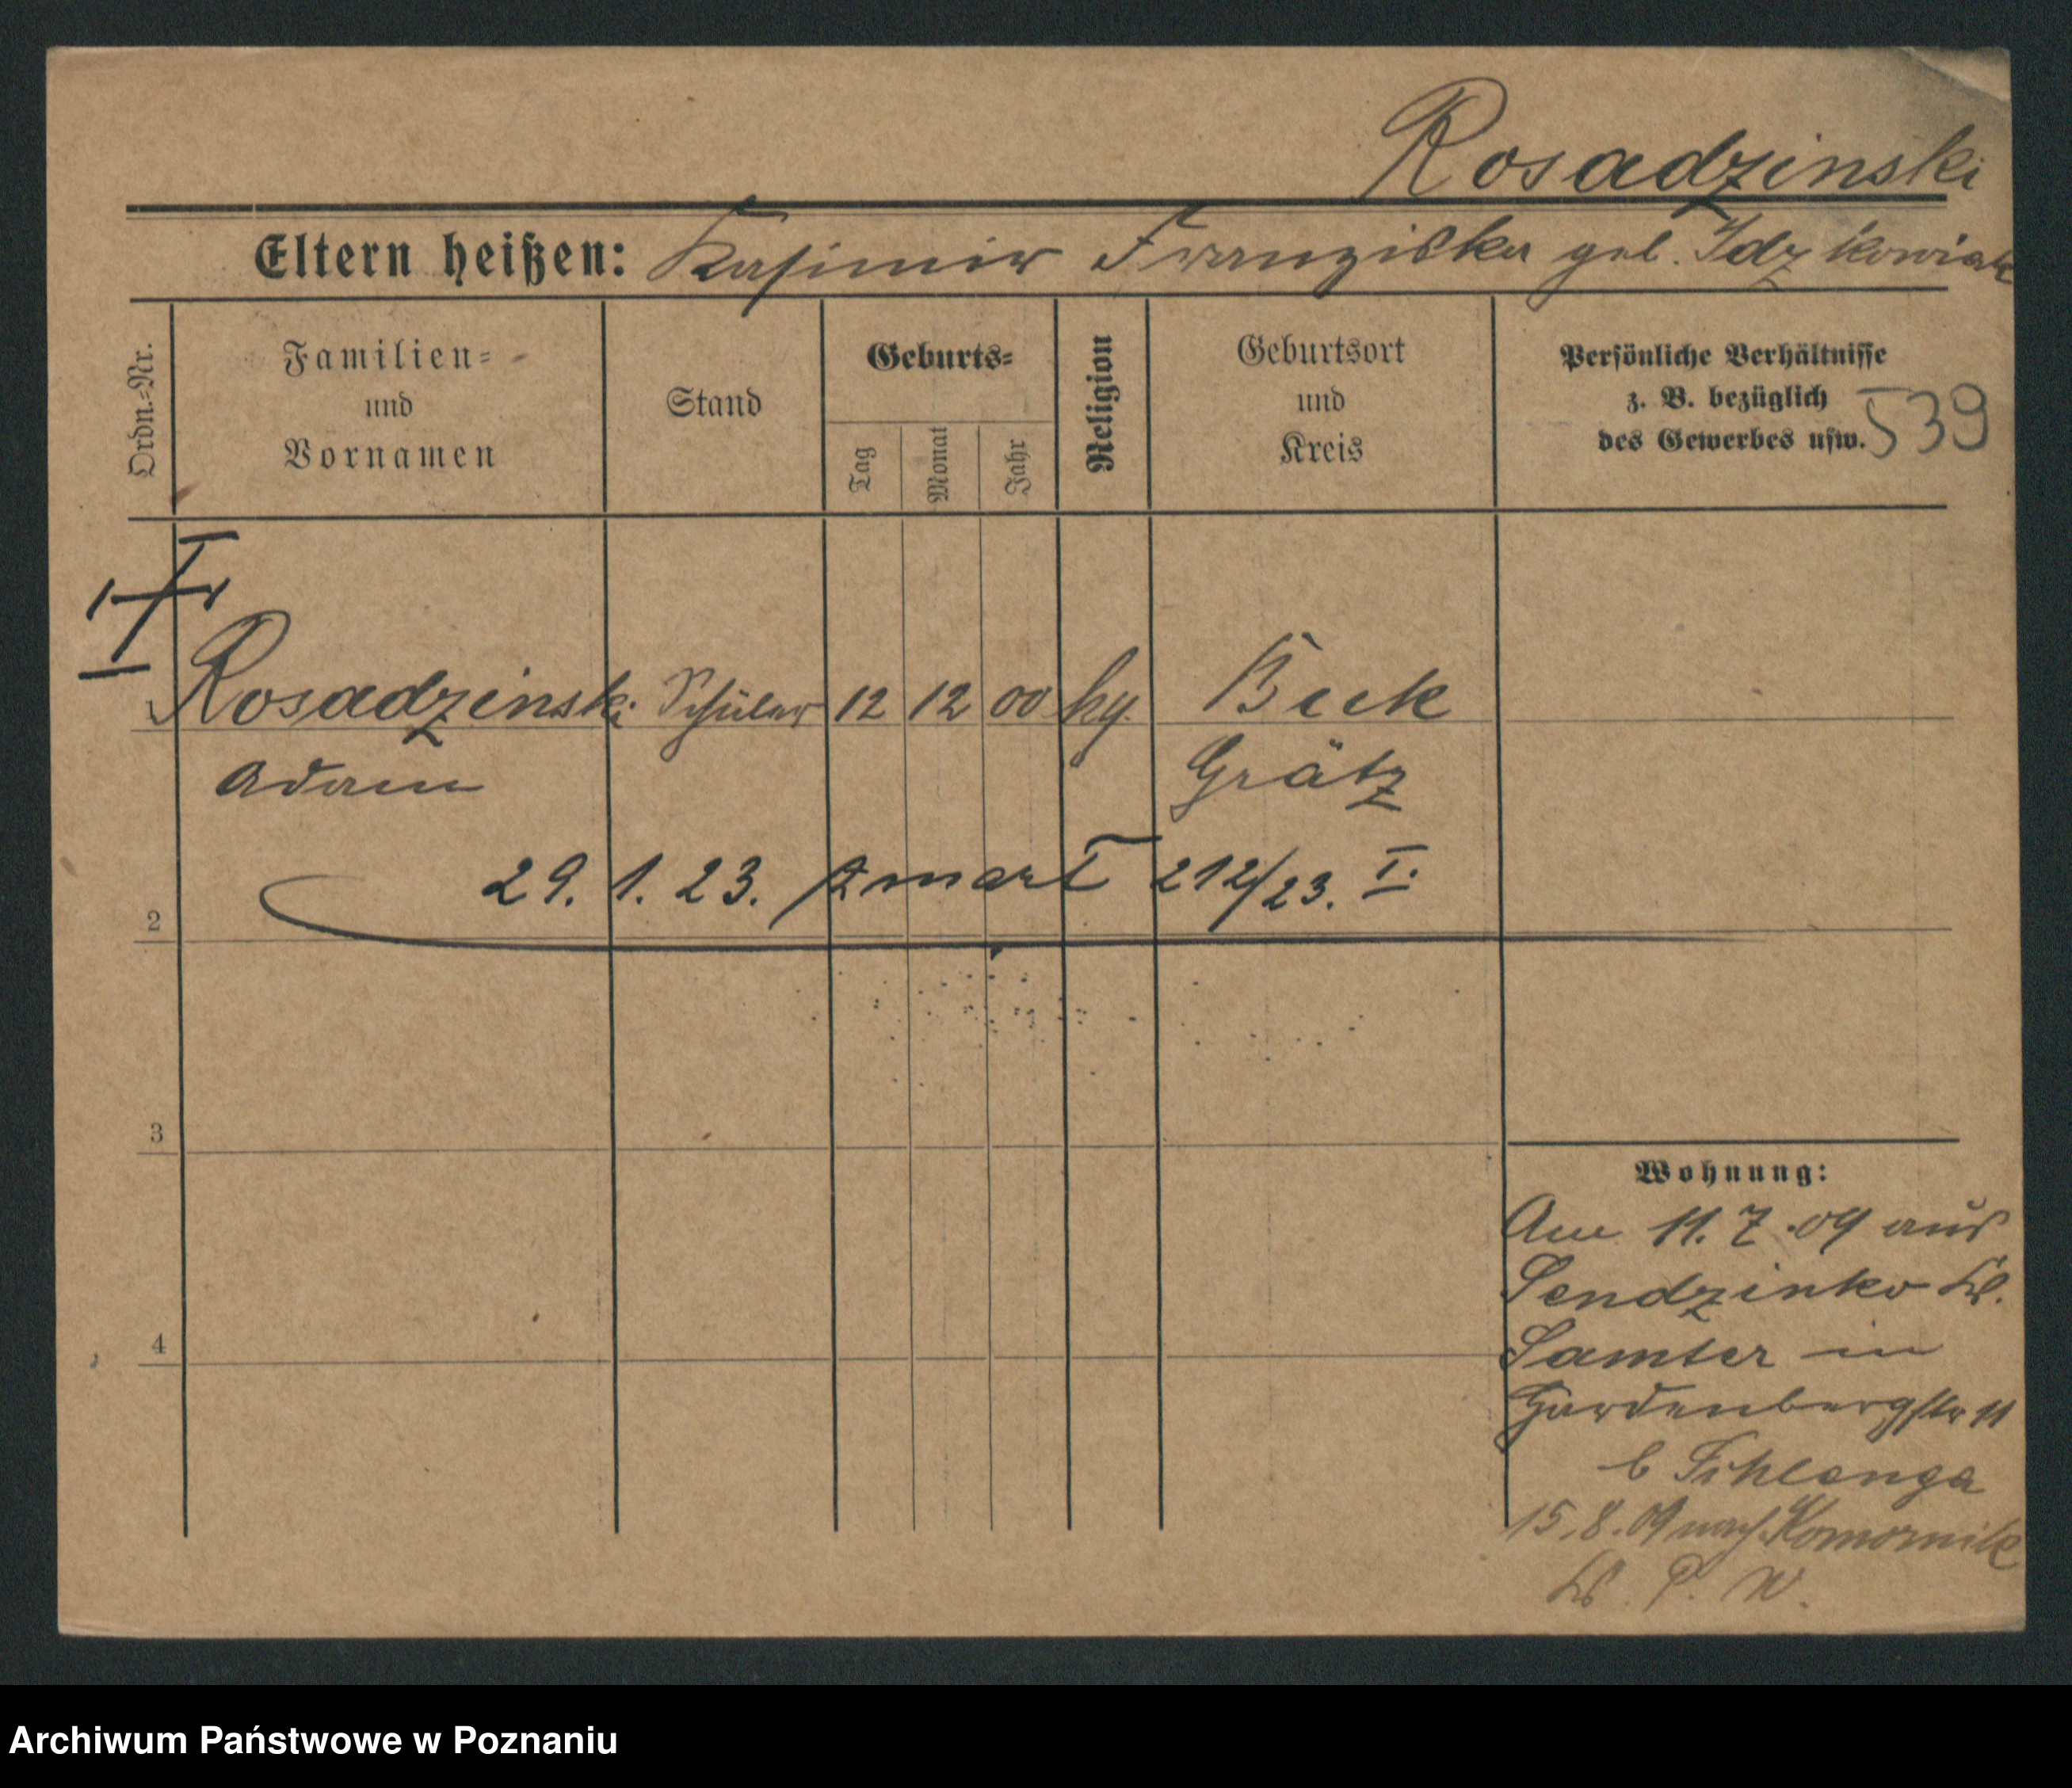 Rosadzinski
Eltern heißen: Kasimir Franziska geb. Idzikowiak
Ordn.-Nr.
Familien-
und
Vornamen
Stand
Geburts-
Tag
Monat
Jahr
Religion
Geburtsort
und
Kreis
Persönliche Verhältnisse
z. B. bezüglich
des Gewerbes usw.
539
1 Rosadzinski Schüler 12 12 00 kg. Buk
Adam Grätz
29. 1. 23. zmarł 212/23. I.
2
3
4
Wohnung:
Am 11. 7. 09 aus
Sendzinko Kr.
Samter in
Hardenbergstr 11
b
15. 8. 09 nach Komornik
Kr. P. W.
Archiwum Państwowe w Poznaniu